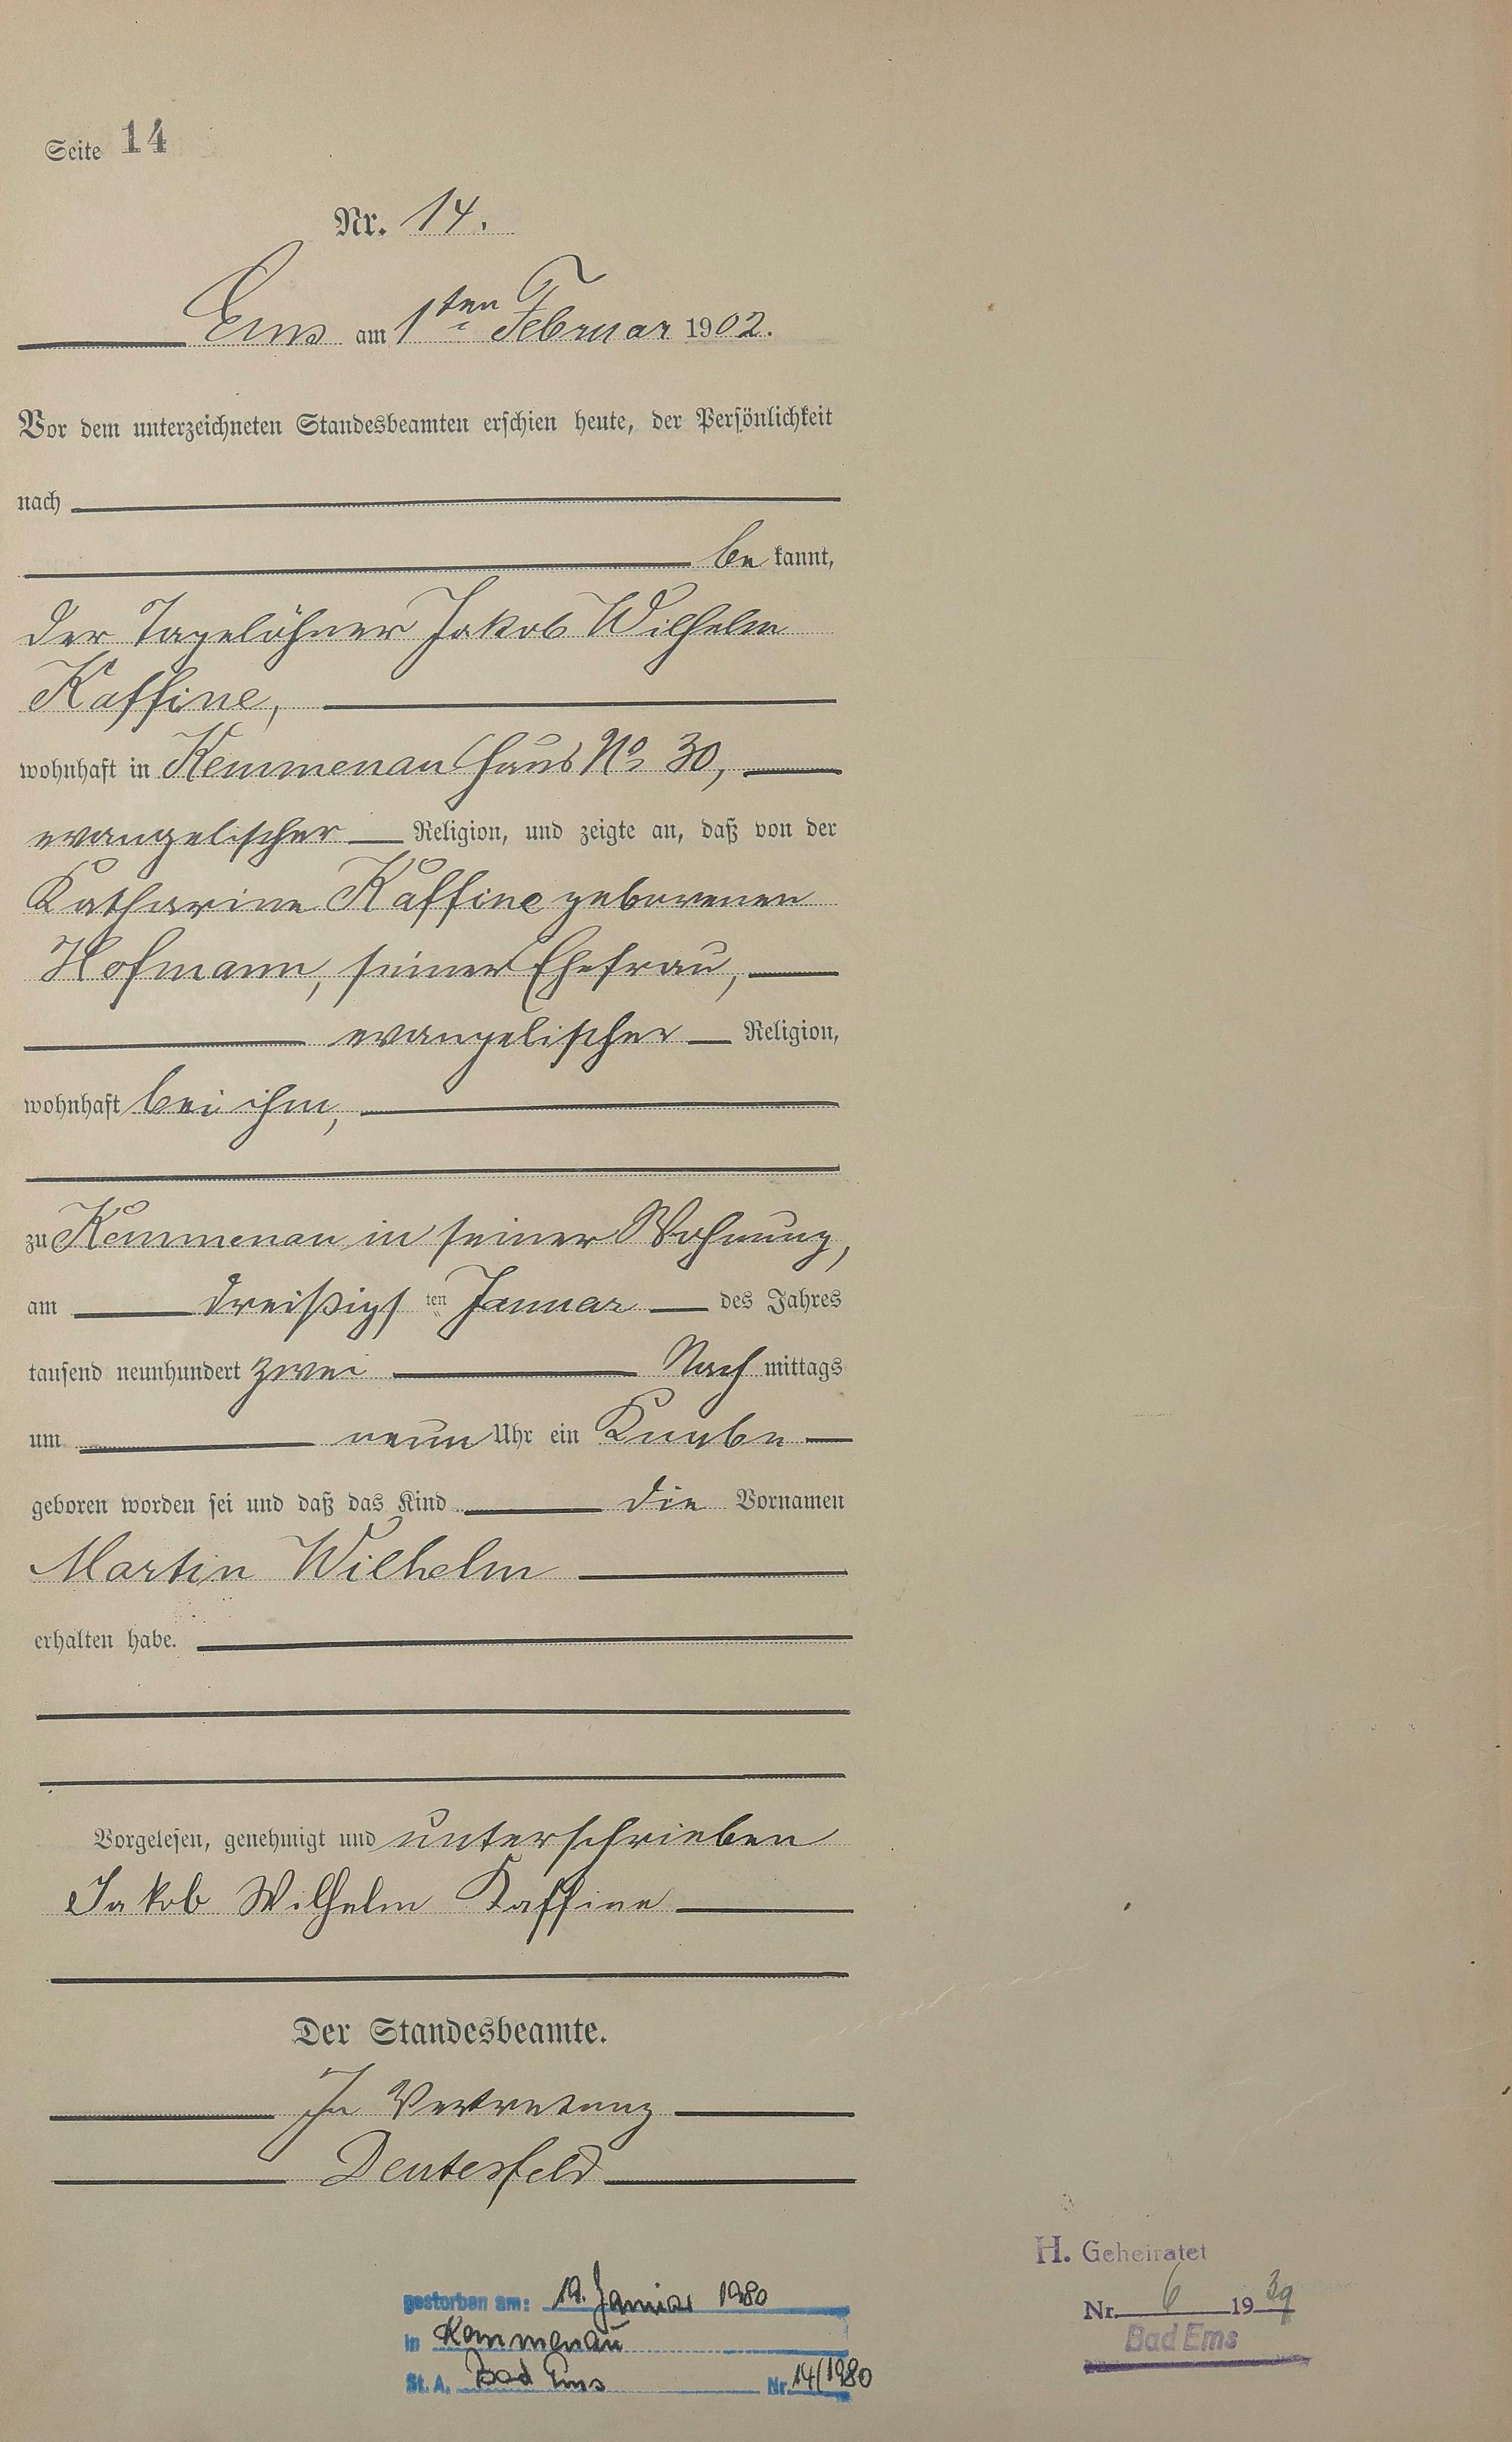 Seite 14
Nr. 14.
Ems am 1ten Februar 1902.
Vor dem unterzeichneten Standesbeamten erschien heute, der Persönlichkeit
nach
be kannt,
der Tagelöhner Jakob Wilhelm
Kaffine,
wohnhaft in Kemmenau Haus No 30,
evangelischer Religion, und zeigte an, daß von der
Katharine Kaffine geborenen
Hofmann, seiner Ehefrau,
evangelischer Religion,
wohnhaft bei ihm,
zu Kemmenau in seiner Wohnung,
am dreißigs ten Januar des Jahres
tausend neunhundert zwei Nach mittags
um neun Uhr ein Knabe
geboren worden sei und daß das Kind die Vornamen
Martin Wilhelm
erhalten habe.
Vorgelesen, genehmigt und unterschrieben
Jakob Wilhelm Kaffine
Der Standesbeamte.
In Vertretung
Deutesfeld
gestorben am: 19. Januar 1980
in Kemmenau
St. A. Bad Ems Nr. 14/1980
H. Geheiratet
Nr. 6 1939
Bad Ems